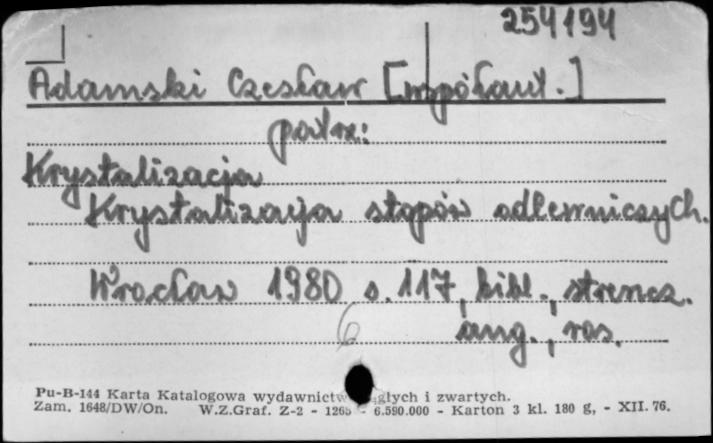 254194
Adamski Czesław [współaut.]
patrz:
Krystalizacja
Krystalizacja stopów odlewniczych.
Wrocław 1980 s. 117, bibl., streszcz.
ang., ros.
6
Pu-B-144 Karta Katalogowa wydawnictw ciągłych i zwartych.
Zam. 1648/DW/On. W.Z.Graf. Z-2 - 1265 - 6.590.000 - Karton 3 kl. 180 g, - XII. 76.